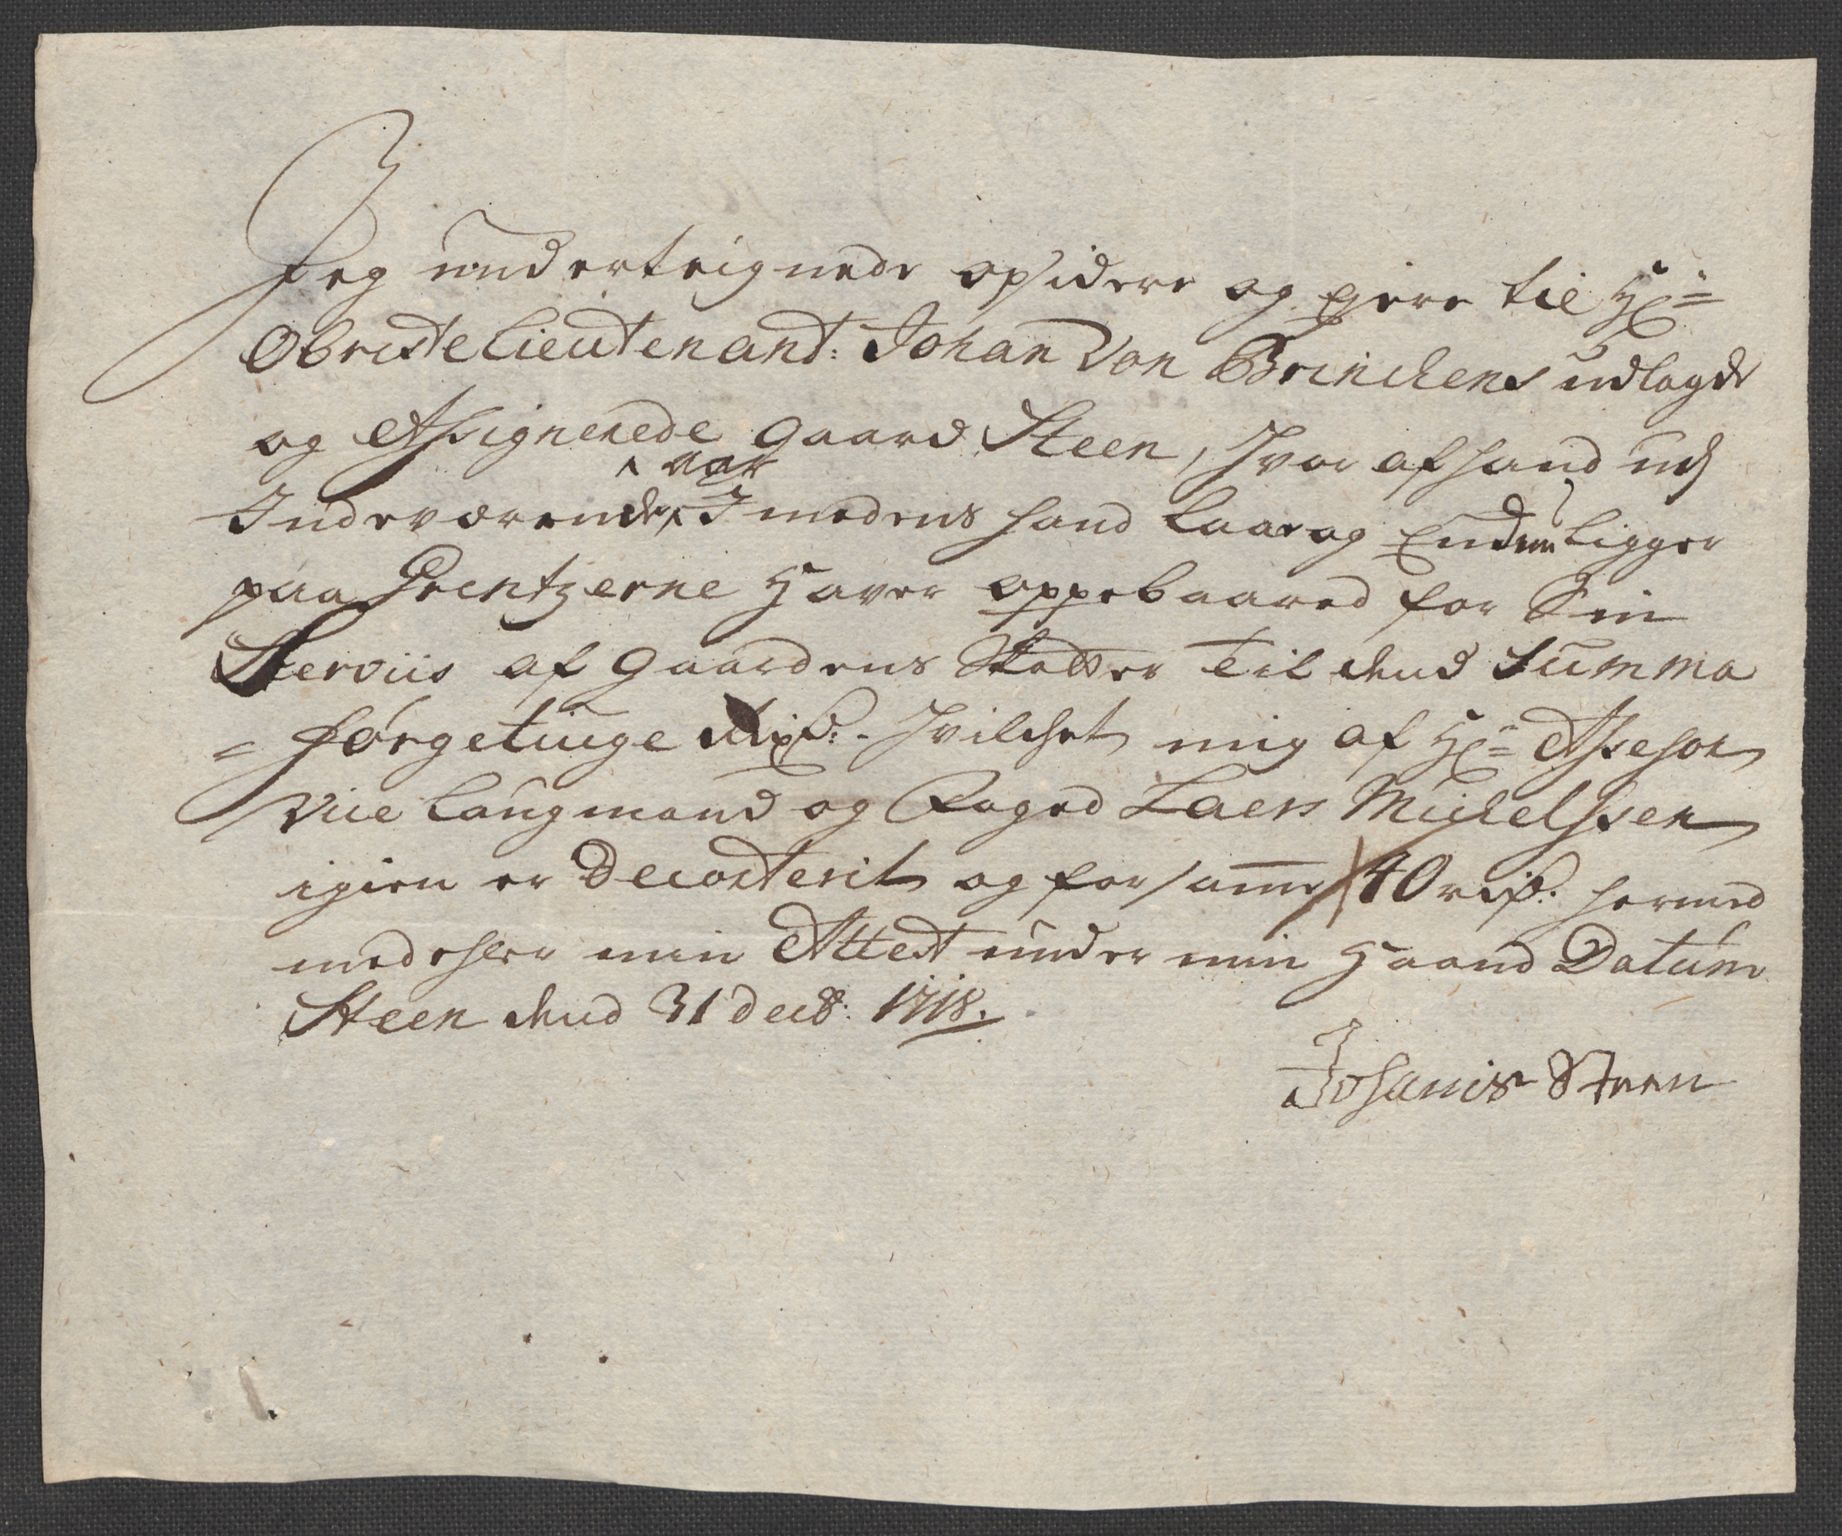 Jeg underteignede opsidere og ejere til Hr:
Obriste Lieutenant: Johan Von Brinchens udlagde
og Assignerede gaard Steen, hvor af hand udj
Indeværende ^aar Imedens hand laae og Endnu ligger
paa Grentzerne haver oppebaared for Sin
Serviis af gaardens Skatter til dend Summa
= førgetiuge rixd:. hvilchet mig af Hr: Assessor
Vice laugmand og Foged Laers Michelssen
igien er Decorterit og for samme 40 rixd: hermed
medeheler min Attest under min Haand Datum
Steen dend 31 decb: 1718.
Johanis Steen